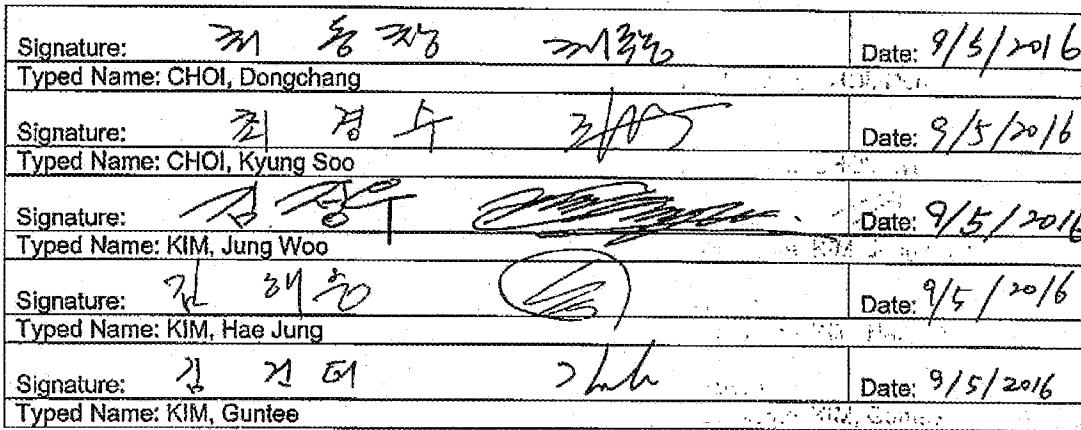 Signature: 최 동 창 Date: 9/5/2016
Typed Name: CHOI, Dongchang
Signature: 최 경 수 Date: 9/5/2016
Typed Name: CHOI, Kyung Soo
Signature: 김 정우 Date: 9/5/2016
Typed Name: KIM, Jung Woo
Signature: 김 Date: 9/5/2016
Typed Name: KIM, Hae Jung
Signature: 김 건 Date: 9/5/2016
Typed Name: KIM, Guntee